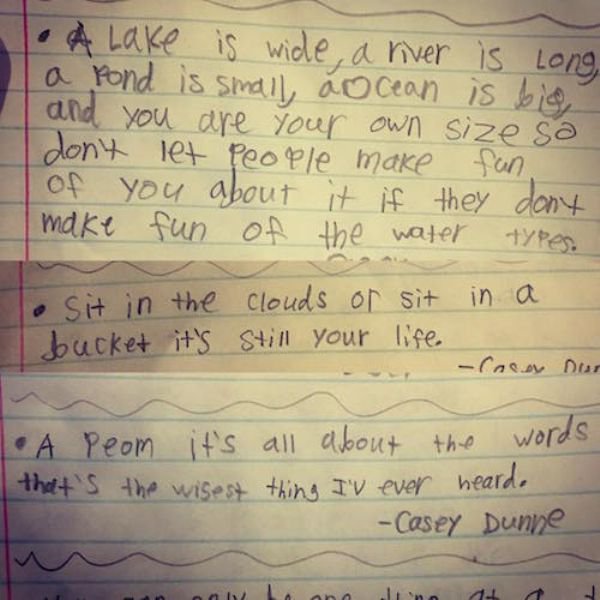 • A Lake is wide, a river is Long,
a Pond is small, a Ocean is big,
and you are your own size so
don't let People make fun
of you about it if they don't
make fun of the water types.
• Sit in the clouds or sit in a
bucket it's still your life.
-Casey Dun
• A Peom it's all about the words
that's the wisest thing I'v ever heard.
-Casey Dunne
can only be one